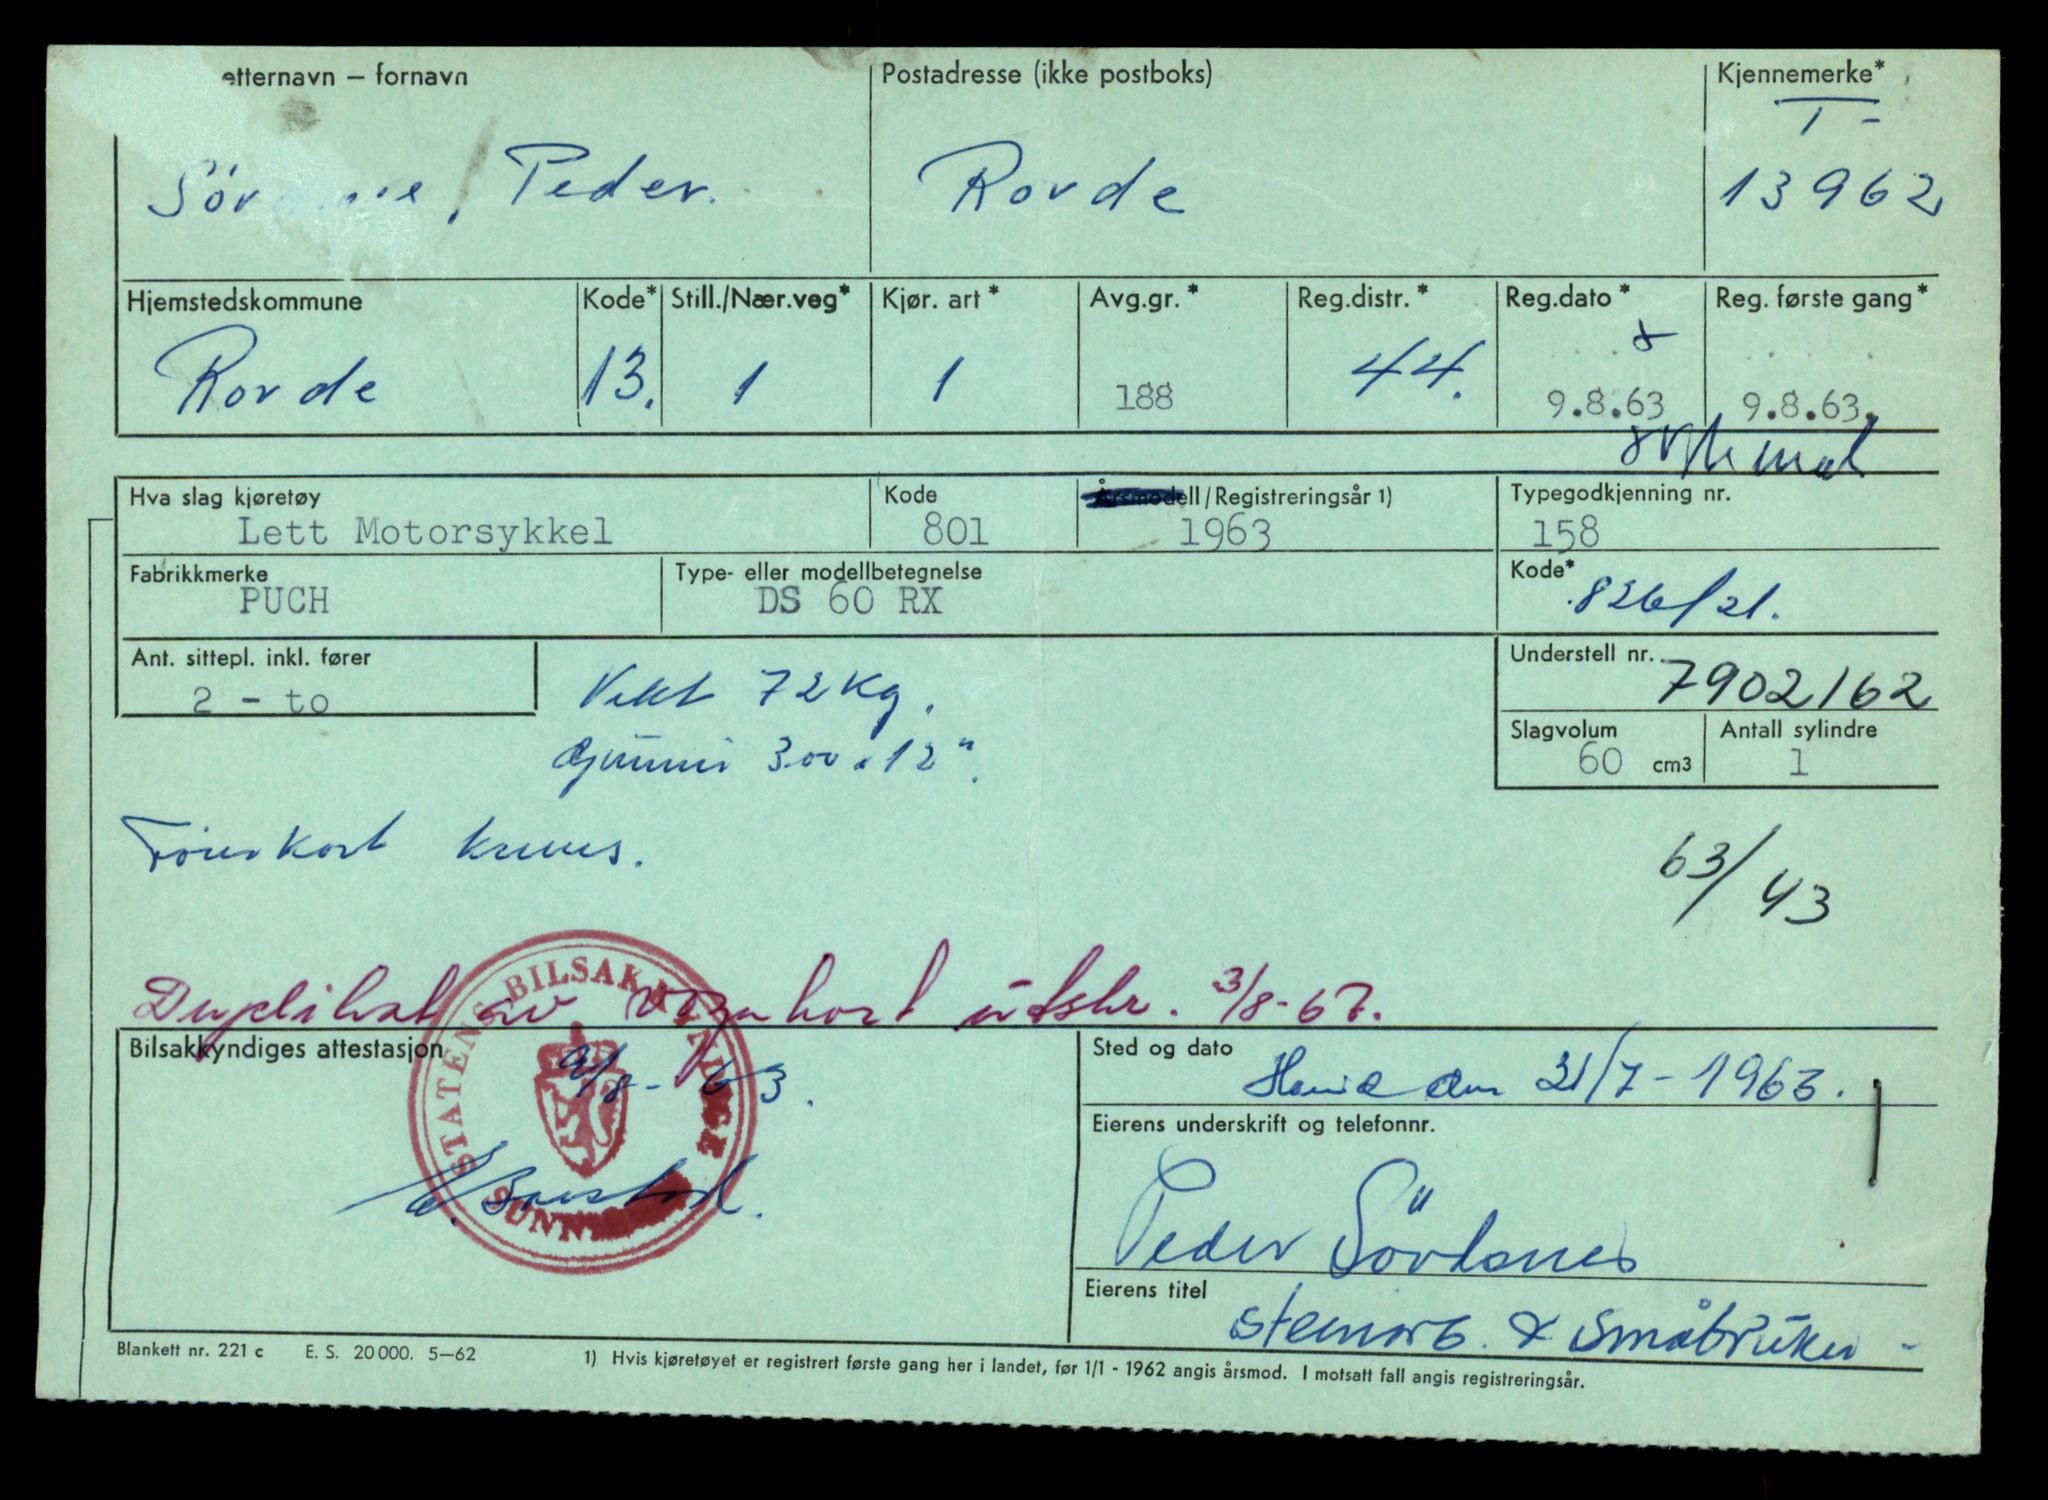 etternavn — fornavn
Postadresse (ikke postboks)
Kjennemerke*
T-
Peder.
Rovde
13962
Hjemstedskommune
Kode*
Still./Nær.veg*
Kjør. art*
Avg.gr.*
Reg.distr.*
Reg.dato*
Reg. første gang*
Rovde
13.
1
1
188
44.
9.8.63
9.8.63.
Hva slag kjøretøy
Kode
Årsmodell/Registreringsår 1)
Typegodkjenning nr.
Lett Motorsykkel
801
1963
158
Fabrikkmerke
Type- eller modellbetegnelse
Kode*
PUCH
DS 60 RX
826/21.
Ant. sittepl. inkl. fører
2 - to
Understell nr.
7902162
Vekt 72 kg.
Gummi 3.00 x 12".
Slagvolum
60 cm3
Antall sylindre
1
63/43
Duplikat av vognkort utskr. 3/8-67.
Bilsakkyndiges attestasjon
9/8-63.
STATENS BILSAKKYNDIGE
SUNN
Sted og dato
31/7-1963.
Eierens underskrift og telefonnr.
Peder
Eierens titel
steinarb. & Småbruker
Blankett nr. 221 c E. S. 20 000. 5—62
1) Hvis kjøretøyet er registrert første gang her i landet, før 1/1 - 1962 angis årsmod. I motsatt fall angis registreringsår.